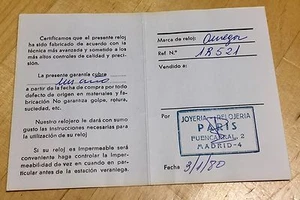 Certificamos que el presente reloj
ha sido fabricado de acuerdo con la
técnica más avanzada y sometido a
los más altos controles de calidad y preci-
sión.
La presente garantía cubre
un año
a partir de la fecha de compra por todo
defecto de origen en materiales y fa-
bricación. No garantiza golpe, rotura,
suciedad, etc.
Nuestro relojero le dará con sumo
gusto las instrucciones necesarias para
la utilización de su reloj
Si su reloj es Impermeable será
conveniente haga controlar la imper-
meabilidad de vez en cuando en par-
ticular antes de la estación veraniega.
Marca de reloj:
Ref. N.° 1R521
Vendido a:
Por
JOYERIA RELOJERIA
PARIS
FUENCARRAL, 2
MADRID-4
Fecha 3/1/80